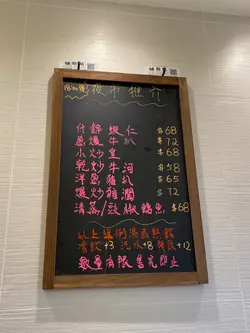 夜市推介
什錦蝦仁 $68
蔥爆牛扒 $72
小炒皇 $68
乾炒牛河 $58
洋蔥豬扒 $65
爆炒豬潤 $72
清蒸/豉椒鯇魚 $68
以上送例湯或熱飲
凍飲+3 汽水+8 啤酒+12
數量有限 售完即止